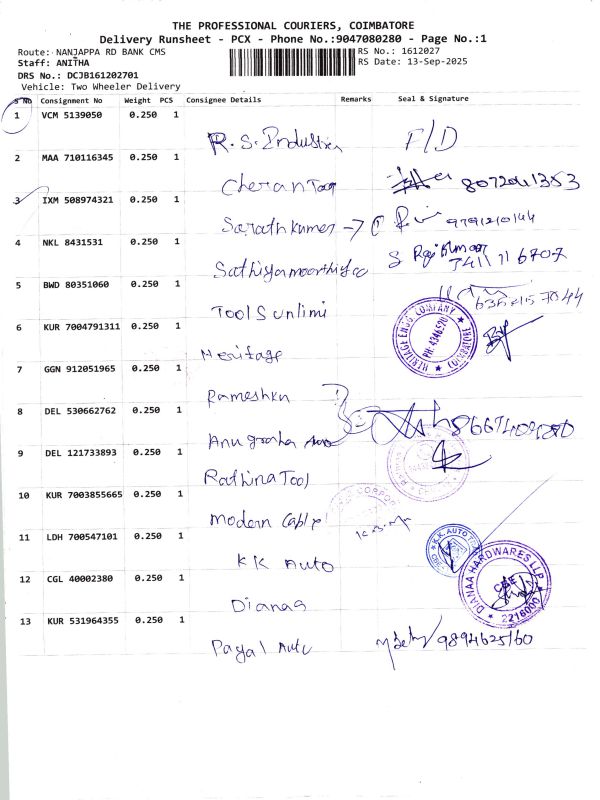 THE PROFESSIONAL COURIERS, COIMBATORE
Delivery Runsheet - PCX - Phone No.:9047080280 - Page No.:1
Route: NANJAPPA RD BANK CMS
RS No.: 1612027
Staff: ANITHA
RS Date: 13-Sep-2025
DRS No.: DCJB161202701
Vehicle: Two Wheeler Delivery
S No Consignment No Weight PCS Consignee Details Remarks Seal & Signature
1 VCM 5139050 0.250 1
R.S. Industries F/D
2 MAA 710116345 0.250 1
Cheran Tool 8072041353
3 IXM 508974321 0.250 1
Sarath kumar 9791210144
4 NKL 8431531 0.250 1
Sathiyamoorthy
5 BWD 80351060 0.250 1
Tools unlimi
6 KUR 7004791311 0.250 1
HERITAGE ENGG. COMPANY
PH: 4346570
COIMBATORE
Heritage
7 GGN 912051965 0.250 1
Rameshku
8 DEL 530662762 0.250 1
Anugraha
9 DEL 121733893 0.250 1
Rathina Tool
10 KUR 7003855665 0.250 1
Modern Cable
11 LDH 700547101 0.250 1
KK Auto
K.K. AUTO
12 CGL 40002380 0.250 1
DIANAA HARDWARES LLP
CBE
2216000
Dianaa
13 KUR 531964355 0.250 1
Payal Auto 9894625160